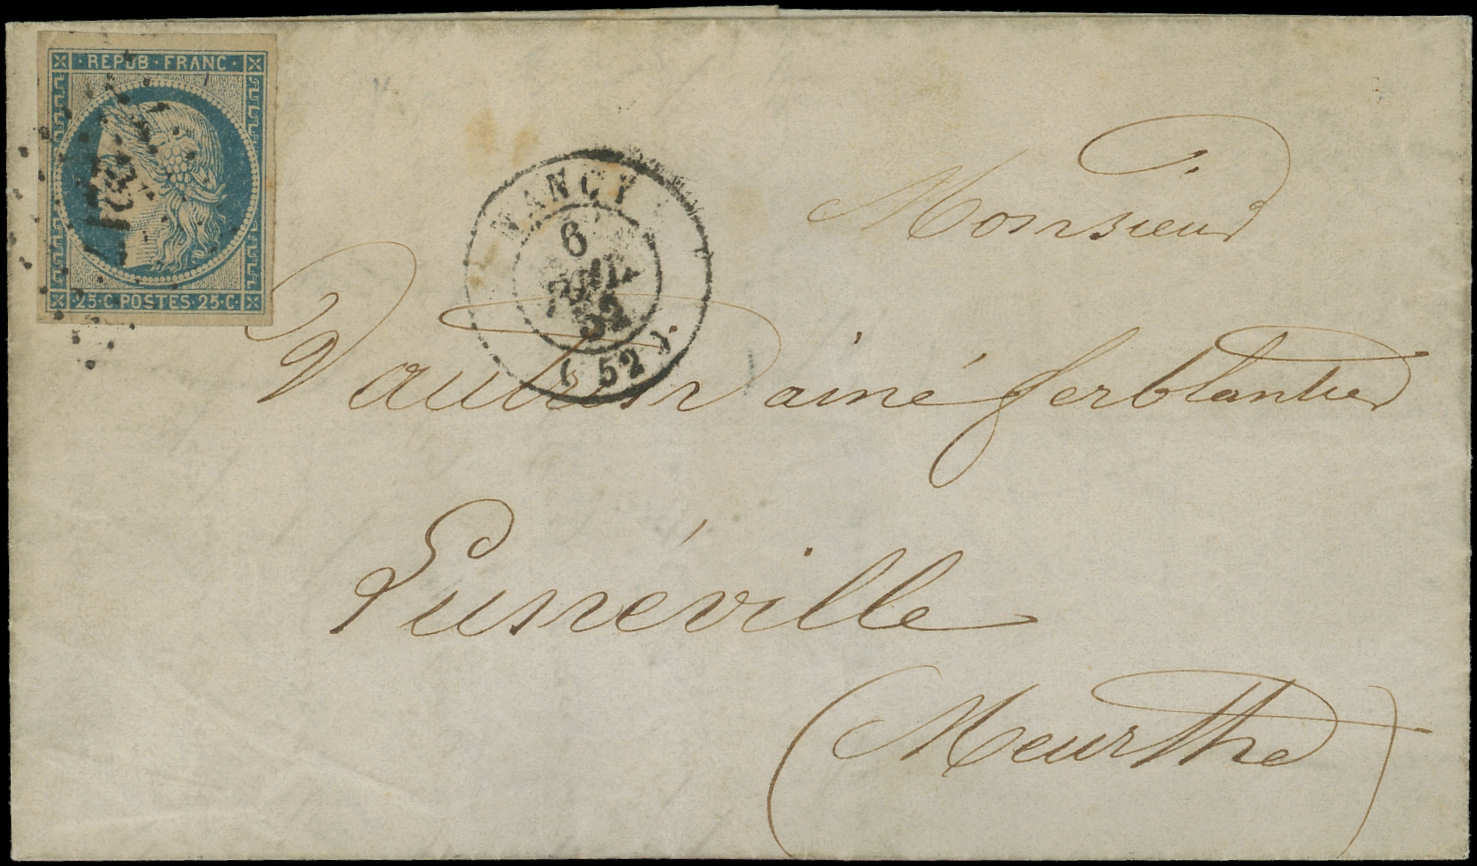 REPUB · FRANC ·
25 · C · POSTES · 25 · C ·
NANCY
6
JUIL
52
( 52 )
Monsieur
ainé ferblantier
Lunéville
(Meurthe)